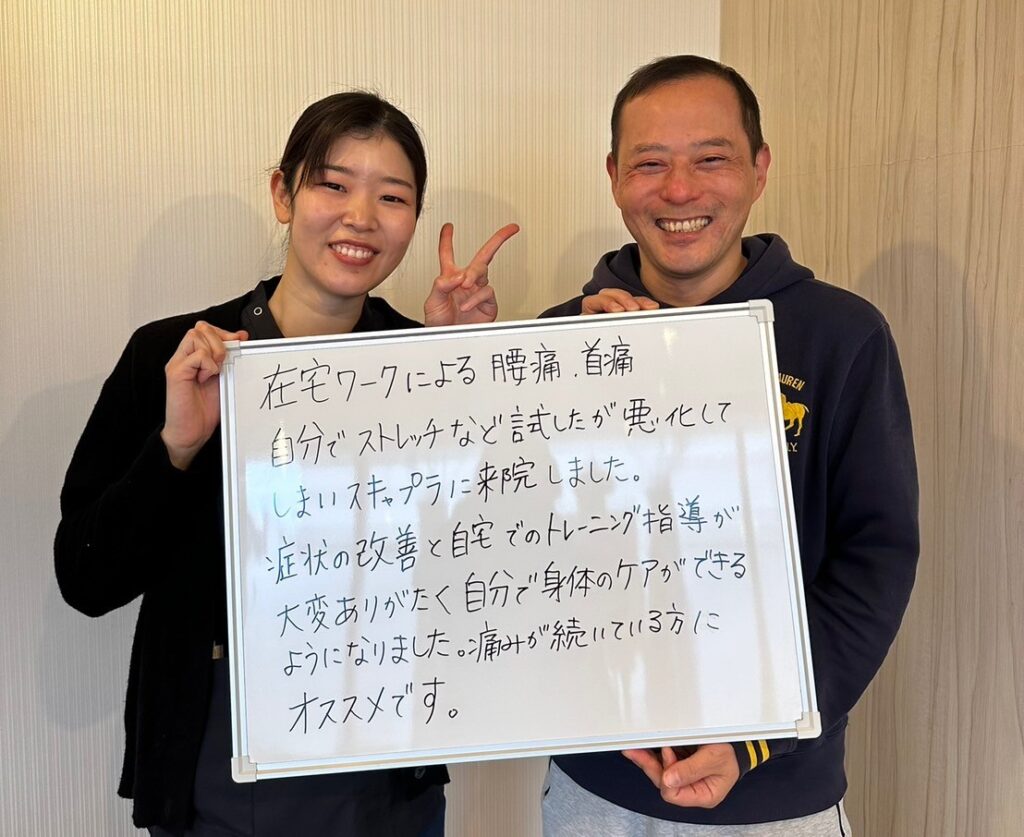 在宅ワークによる腰痛.首痛
自分でストレッチなど試したが悪化して
しまいスキャプラに来院しました。
症状の改善と自宅でのトレーニング指導が
大変ありがたく自分で身体のケアができる
ようになりました。痛みが続いている方に
オススメです。
AUREN
LY.